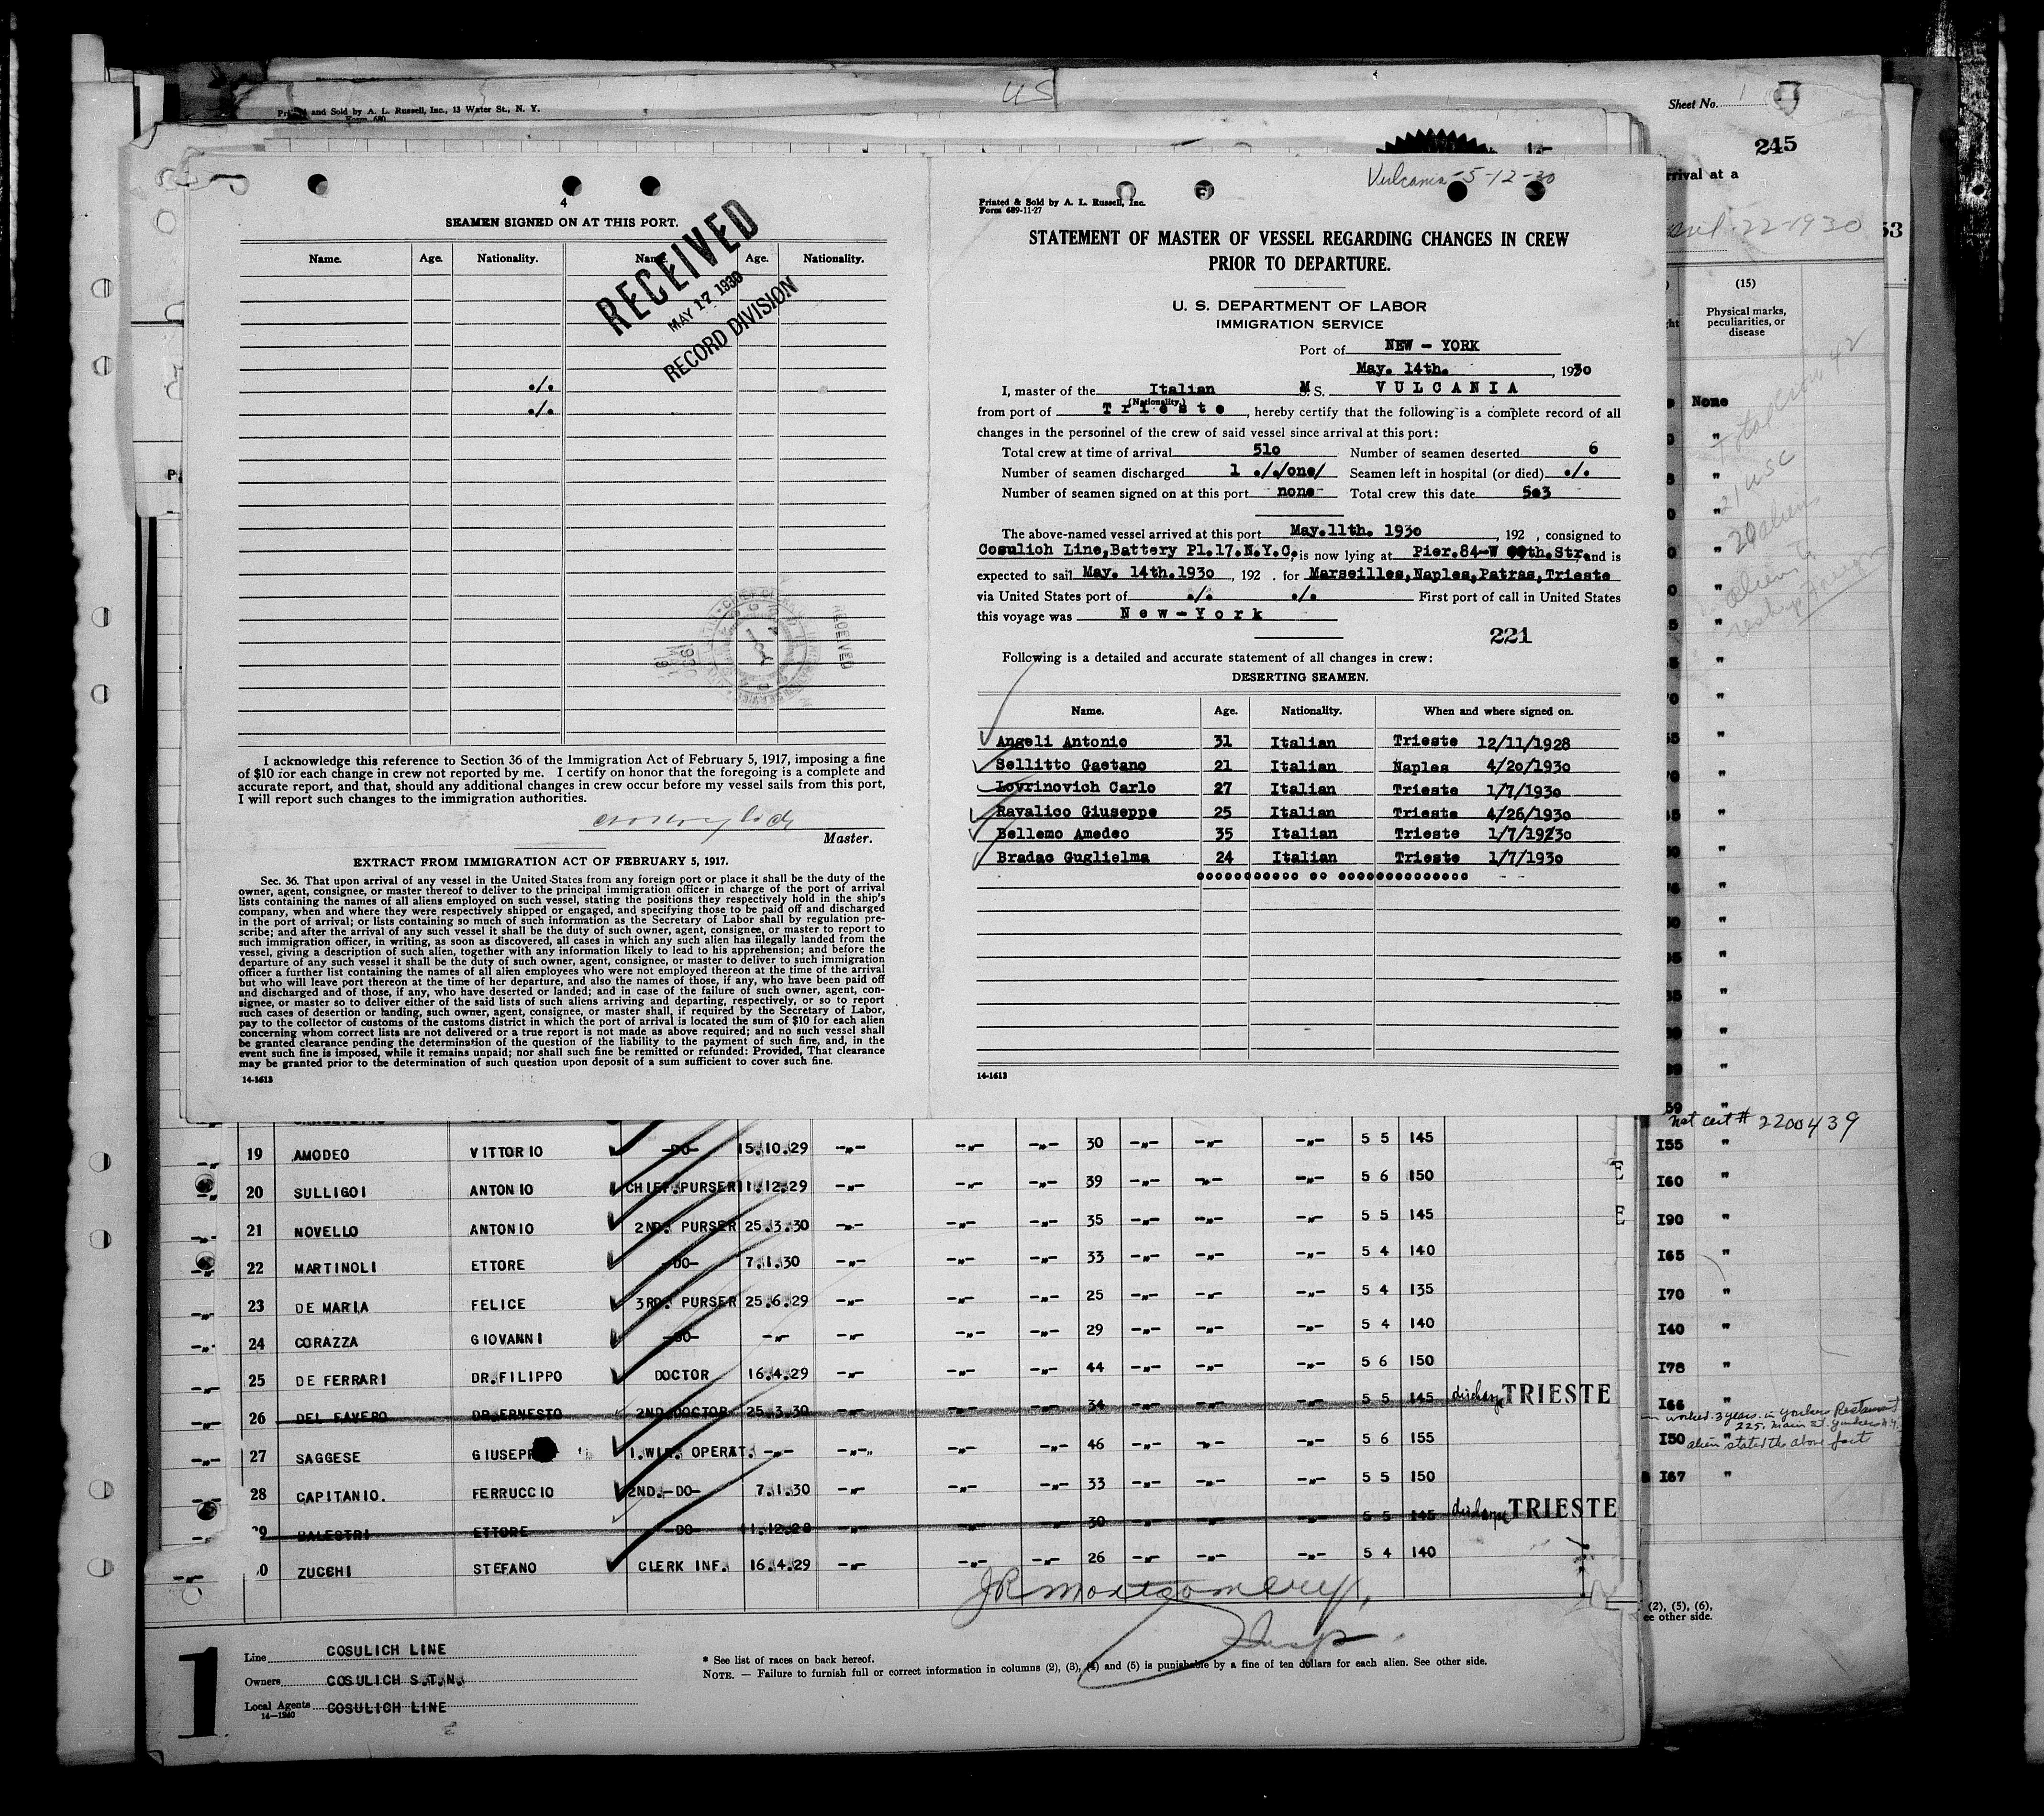 Printed and Sold by A. L. Russell, Inc., 13 Water St., N. Y.
Form 680
US
Sheet No. 1
245
rrival at a
22-1930
53
(15)
Physical marks,
peculiarities, or
disease
None
4
SEAMEN SIGNED ON AT THIS PORT.
Name. Age. Nationality. Name. Age. Nationality.
RECEIVED
MAY 17 1930
RECORD DIVISION
./.
./.
RECEIVED
I acknowledge this reference to Section 36 of the Immigration Act of February 5, 1917, imposing a fine
of $10 for each change in crew not reported by me. I certify on honor that the foregoing is a complete and
accurate report, and that, should any additional changes in crew occur before my vessel sails from this port,
I will report such changes to the immigration authorities.
Master.
EXTRACT FROM IMMIGRATION ACT OF FEBRUARY 5, 1917.
Sec. 36. That upon arrival of any vessel in the United States from any foreign port or place it shall be the duty of the
owner, agent, consignee, or master thereof to deliver to the principal immigration officer in charge of the port of arrival
lists containing the names of all aliens employed on such vessel, stating the positions they respectively hold in the ship's
company, when and where they were respectively shipped or engaged, and specifying those to be paid off and discharged
in the port of arrival; or lists containing so much of such information as the Secretary of Labor shall by regulation pre-
scribe; and after the arrival of any such vessel it shall be the duty of such owner, agent, consignee, or master to report to
such immigration officer, in writing, as soon as discovered, all cases in which any such alien has illegally landed from the
vessel, giving a description of such alien, together with any information likely to lead to his apprehension; and before the
departure of any such vessel it shall be the duty of such owner, agent, consignee, or master to deliver to such immigration
officer a further list containing the names of all alien employees who were not employed thereon at the time of the arrival
but who will leave port thereon at the time of her departure, and also the names of those, if any, who have been paid off
and discharged and of those, if any, who have deserted or landed; and in case of the failure of such owner, agent, con-
signee, or master so to deliver either of the said lists of such aliens arriving and departing, respectively, or so to report
such cases of desertion or landing, such owner, agent, consignee, or master shall, if required by the Secretary of Labor,
pay to the collector of customs of the customs district in which the port of arrival is located the sum of $10 for each alien
concerning whom correct lists are not delivered or a true report is not made as above required; and no such vessel shall
be granted clearance pending the determination of the question of the liability to the payment of such fine, and, in the
event such fine is imposed, while it remains unpaid; nor shall such fine be remitted or refunded: Provided, That clearance
may be granted prior to the determination of such question upon deposit of a sum sufficient to cover such fine.
14-1613
Vulcania-5-12-30
Printed & Sold by A. L. Russell, Inc.
Form 689-11-27
STATEMENT OF MASTER OF VESSEL REGARDING CHANGES IN CREW
PRIOR TO DEPARTURE.
U. S. DEPARTMENT OF LABOR
IMMIGRATION SERVICE
Port of NEW - YORK
May. 14th. , 1930
I, master of the Italian M.S. VULCANIA
(Nationality.)
from port of Trieste , hereby certify that the following is a complete record of all
changes in the personnel of the crew of said vessel since arrival at this port:
Total crew at time of arrival 510 Number of seamen deserted 6
Number of seamen discharged 1 ././one/ Seamen left in hospital (or died) ./.
Number of seamen signed on at this port none Total crew this date 503
The above-named vessel arrived at this port May.11th. 1930 , 192 , consigned to
Cosulich Line,Battery Pl.17.N.Y.C. is now lying at Pier.84-W th.Str, and is
expected to sail May. 14th.1930 , 192 . for Marseilles,Naples,Patras,Trieste
via United States port of ./. ./. First port of call in United States
this voyage was New-York
221
Following is a detailed and accurate statement of all changes in crew:
DESERTING SEAMEN.
Name. Age. Nationality. When and where signed on.
Angeli Antonio 31 Italian Trieste 12/11/1928
Sellitto Gaetano 21 Italian Naples 4/20/1930
Lovrinovich Carlo 27 Italian Trieste 1/7/1930
Ravalico Giuseppe 25 Italian Trieste 4/26/1930
Bellemo Amedeo 35 Italian Trieste 1/7/19230
Bradac Guglielma 24 Italian Trieste 1/7/1930
14-1613
not cert # 2200439
19 AMODEO VITTORIO -DO- 15.10.29 -"- -"- -"- 30 -"- -"- -"- 5 5 145
20 SULLIGOI ANTONIO CHIEF.PURSER 11.12.29 -"- -"- -"- 39 -"- -"- -"- 5 6 150
21 NOVELLO ANTONIO 2ND. PURSER 25.3.30 -"- -"- -"- 35 -"- -"- -"- 5 5 145
22 MARTINOLI ETTORE -DO- 7.1.30 -"- -"- -"- 33 -"- -"- -"- 5 4 140
23 DE MARIA FELICE 3RD. PURSER 25.6.29 -"- -"- -"- 25 -"- -"- -"- 5 4 135
24 CORAZZA GIOVANNI -DO- -"- -"- -"- -"- 29 -"- -"- -"- 5 4 140
25 DE FERRARI DR.FILIPPO DOCTOR 16.4.29 -"- -"- -"- 44 -"- -"- -"- 5 6 150
26 DEL FAVERO DR.ERNESTO 2ND.DOCTOR 25.3.30 34 5 5 145 discharg TRIESTE
27 SAGGESE GIUSEPP 1.WIR. OPERAT. -"- -"- -"- -"- 46 -"- -"- -"- 5 6 155
28 CAPITANIO. FERRUCCIO 2ND.-DO- 7.1.30 -"- -"- -"- 33 -"- -"- -"- 5 5 150
29 BALESTRI ETTORE -DO- 11.12.28 30 5 5 145 discharge TRIESTE
0 ZUCCHI STEFANO CLERK INF. 16.4.29 -"- -"- -"- 26 -"- -"- -"- 5 4 140
JR Montgomery,
Insp.
I55 "
I60 "
I90 "
I65 "
I70 "
I40 "
I78 "
I66 "
worked 3 years in Yonkers Restaurant
225 Main St. Yonkers N.Y.
I50 " alien stated the above facts
I67 "
(2), (5), (6),
ee other side.
1
Line COSULICH LINE
Owners COSULICH S.T.N.
Local Agents COSULICH LINE
14-1240
* See list of races on back hereof.
NOTE. — Failure to furnish full or correct information in columns (2), (3), (4) and (5) is punishable by a fine of ten dollars for each alien. See other side.